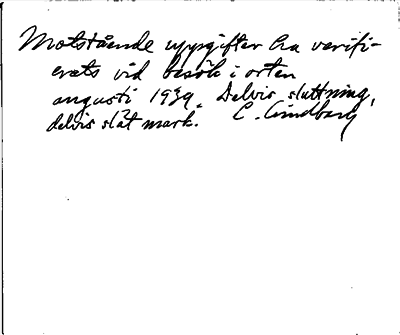 Motstående uppgifter ha verifi-
erats vid besök i orten
augusti 1939. Delvis sluttning,
delvis slät mark. C. Lindberg